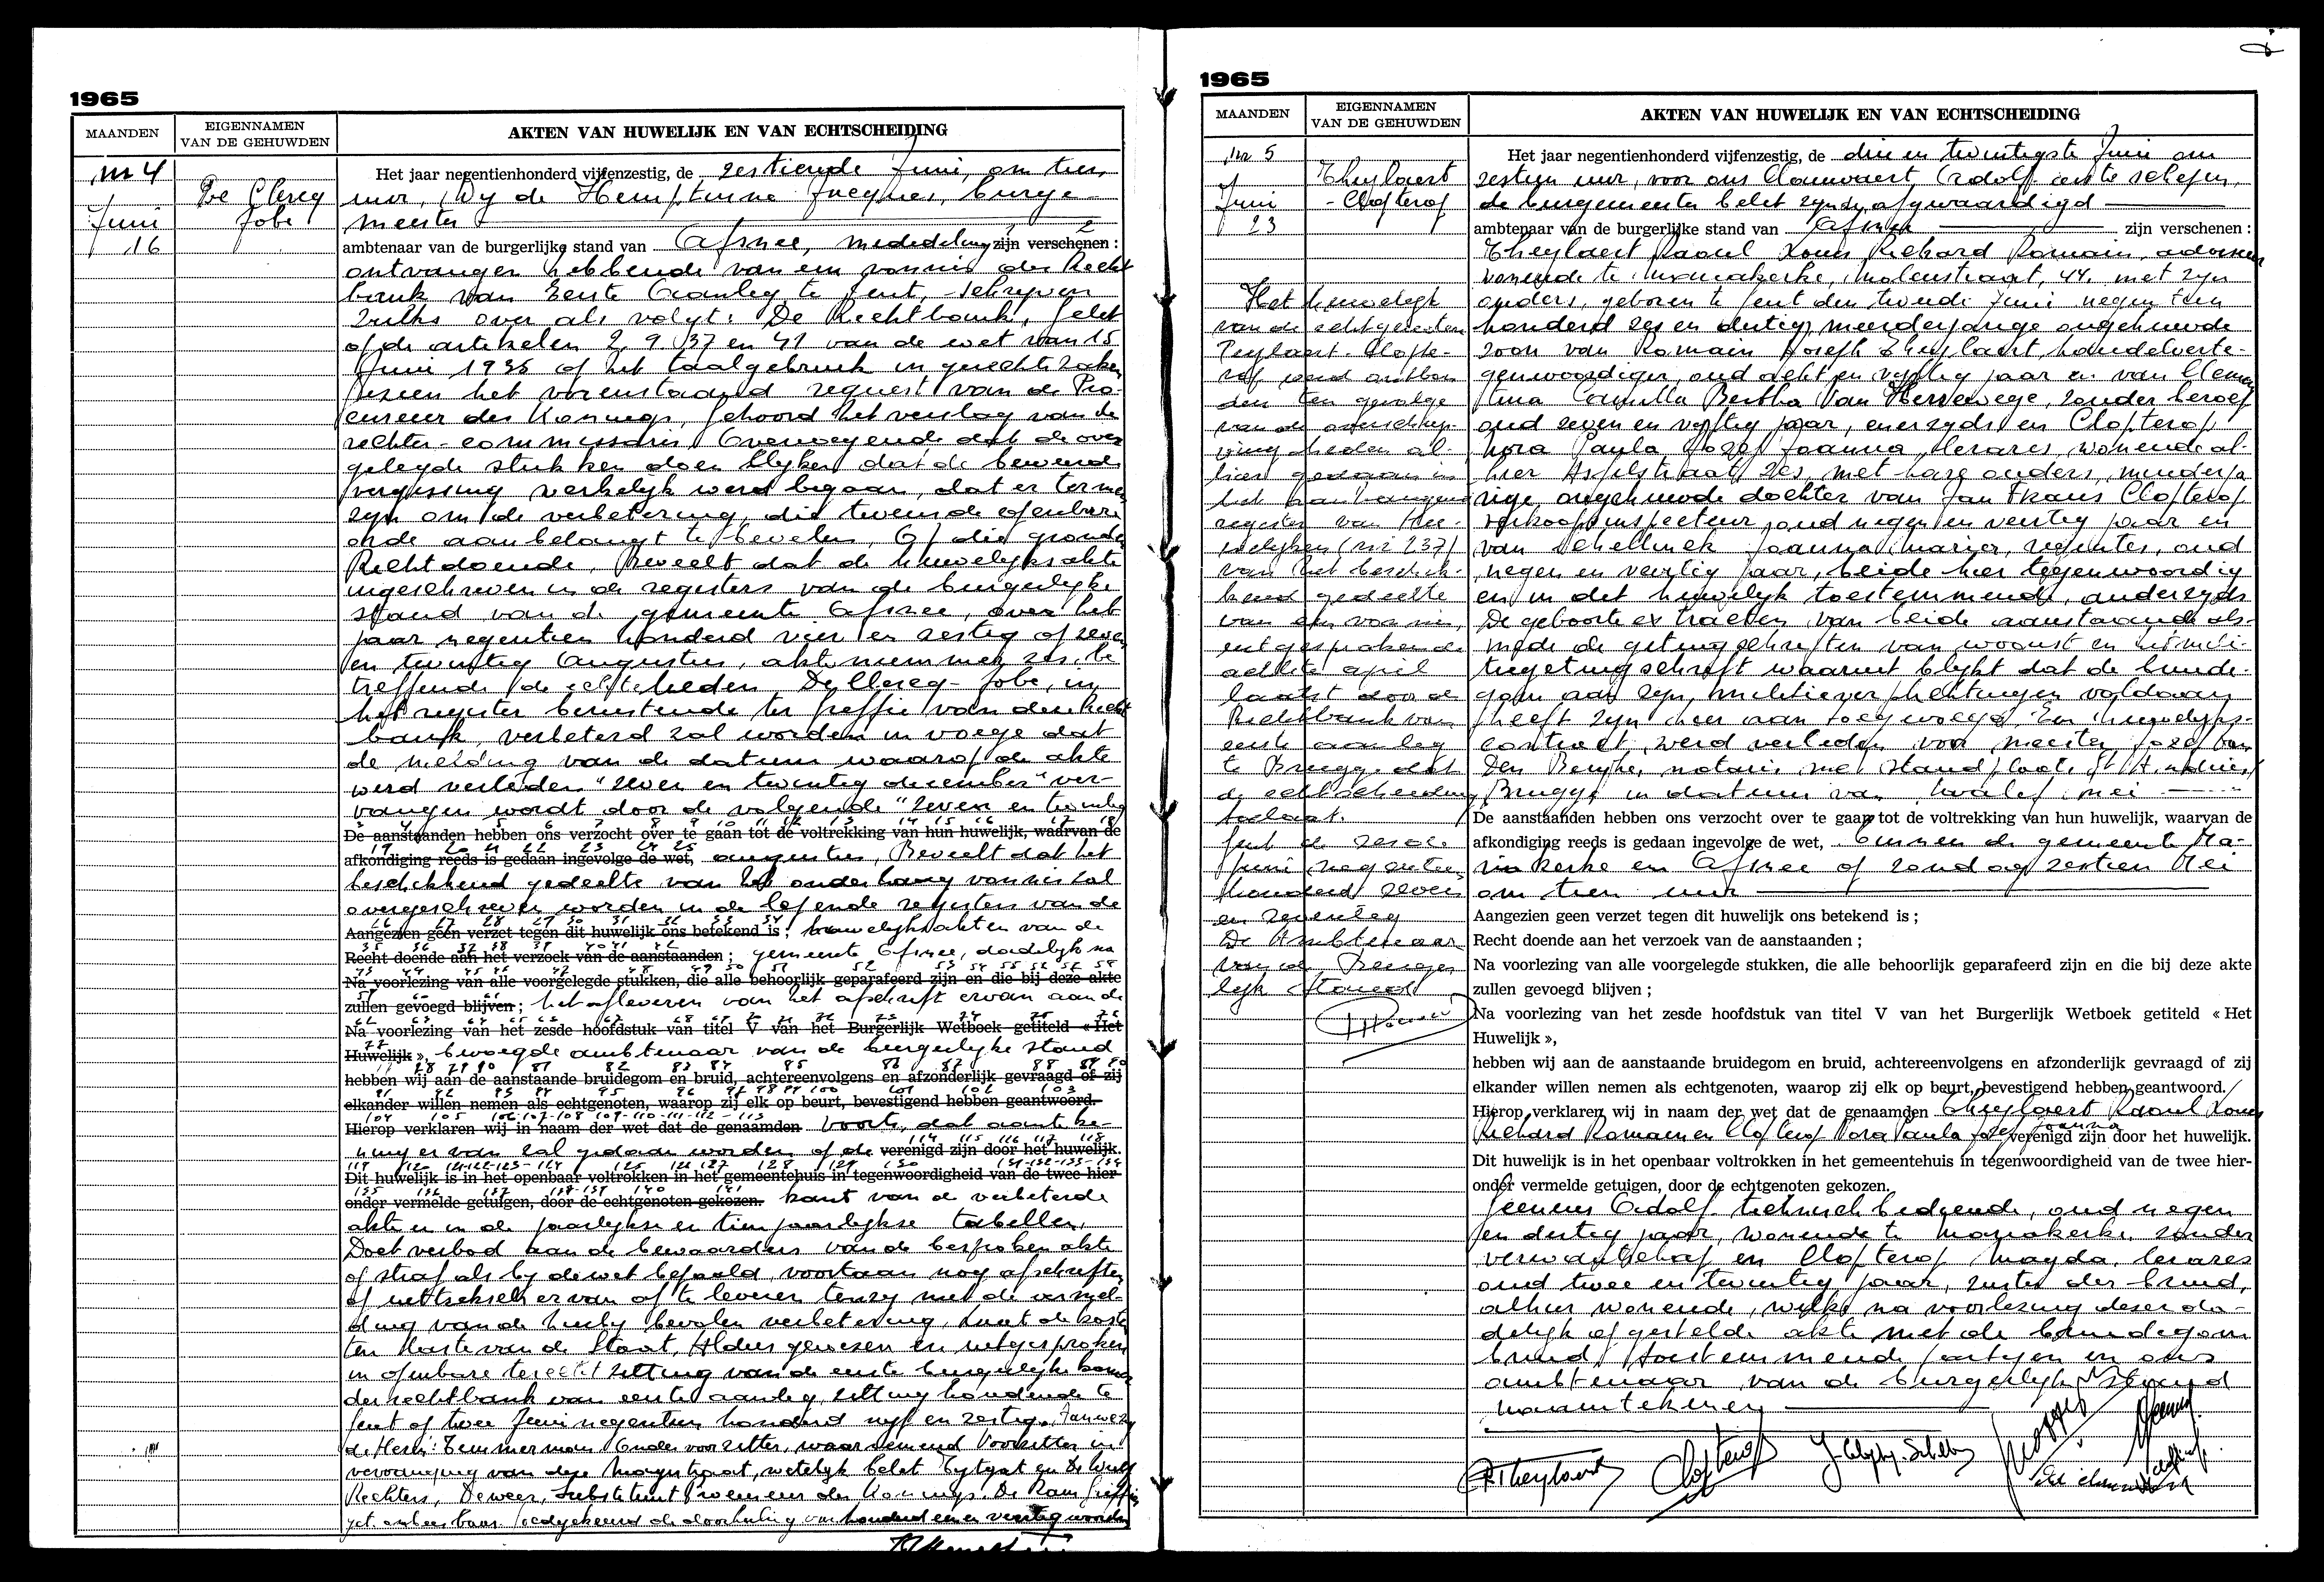 1965
MAANDEN
EIGENNAMEN
VAN DE GEHUWDEN
AKTEN VAN HUWELIJK EN VAN ECHTSCHEIDING
nr 4
De Clercq
Jobe
Juni
16
Het jaar negentienhonderd vijfenzestig, de zestiende Juni, om tien
uur, Wij de Hemptinne Jacques, burge-
meester
ambtenaar van de burgerlijke stand van Afsnee, mededeling zijn verschenen :
ontvangen hebbende van een vonnis der Recht
bank van Eerste Aanleg te Gent, schrijven
zulks over als volgt: De Rechtbank, Gelet
op de artikelen 2, 9, 37 en 41 van de wet van 15
Juni 1935 op het taalgebruik in gerechtszaken
Gezien het vorenstaand request van de Pro-
cureur des Konings, Gehoord het verslag van de
rechter-commissaris Overwegende dat de over
gelegde stukken doen blijken dat de beweerde
vergissing werkelijk werd begaan, dat er termen
zijn om de verbetering, die tevens de openbare
orde aanbelangt te bevelen, Op die gronden
Rechtdoende, Beveelt dat de huwelijksakte
ingeschreven in de registers van de burgerlijke
stand van de gemeente Afsnee, over het
jaar negentien honderd vier en zestig op zeven
en twintig Augustus, akte nummer zes, be
treffende de echtelieden De Clercq - Jobe, in
het register berustende ter griffie van deze Recht
bank, verbeterd zal worden in voege dat
de melding van de datum waarop de akte
werd verleden "zeven en twintig december" ver-
vangen wordt door de volgende "zeven en twintig
De aanstaanden hebben ons verzocht over te gaan tot de voltrekking van hun huwelijk, waarvan de
afkondiging reeds is gedaan ingevolge de wet, augustus, Beveelt dat het
beschikkend gedeelte van het onderhavig vonnis zal
overgeschreven worden in de lopende registers van de
Aangezien geen verzet tegen dit huwelijk ons betekend is ; huwelijksakten van de
Recht doende aan het verzoek van de aanstaanden ; gemeente Afsnee, dadelijk na
Na voorlezing van alle voorgelegde stukken, die alle behoorlijk geparafeerd zijn en die bij deze akte
zullen gevoegd blijven ; het afleveren van het afschrift ervan aan de
Na voorlezing van het zesde hoofdstuk van titel V van het Burgerlijk Wetboek getiteld « Het
Huwelijk », bevoegde ambtenaar van de burgerlijke stand
hebben wij aan de aanstaande bruidegom en bruid, achtereenvolgens en afzonderlijk gevraagd of zij
elkander willen nemen als echtgenoten, waarop zij elk op beurt, bevestigend hebben geantwoord.
Hierop verklaren wij in naam der wet dat de genaamden voorts, dat aanteke-
ning ervan zal gedaan worden op de verenigd zijn door het huwelijk.
Dit huwelijk is in het openbaar voltrokken in het gemeentehuis in tegenwoordigheid van de twee hier-
onder vermelde getuigen, door de echtgenoten gekozen. kant van de verbeterde
akte en in de jaarlijkse en tienjaarlijkse tabellen.
Doet verbod aan de bewaarders van de besproken akte
op straf als bij de wet bepaald, voortaan nog afschriften
of uittreksels ervan af te leveren tenzij met de vermel-
ding van de hierbij bevolen verbetering, laat de kosten
ten laste van de Staat. Aldus gewezen en uitgesproken
in openbare terechtzitting van de eerste burgerlijke kamer
der rechtbank van eerste aanleg, zitting houdende te
Gent op twee Juni negentien honderd vijf en zestig. Aanwezig
de Heren: Temmerman Ondervoorzitter, waarnemend Voorzitter in
vervanging van deze magistraat, wettelijk belet
Rechters, Deweer, Substituut Procureur des Konings. De Ram Griffier
get. onleesbaar. Goedgekeurd de doorhaling van honderd een en veertig woorden
1965
MAANDEN
EIGENNAMEN
VAN DE GEHUWDEN
AKTEN VAN HUWELIJK EN VAN ECHTSCHEIDING
nr 5
Theylaert
- Clopterop
Juni
23
Het huwelijk
van de echtgenoten
Teylaert - Clopte-
rop werd ontbon
den ten gevolge
van de overschrij-
ving heden al-
hier gedaan in
het aanvangend
register van Hu-
welijken (nr 237)
van het beschik-
kend gedeelte
van een vonnis,
uitgesproken de
achtste april
laatst door de
Rechtbank van
eerste aanleg
te Brugge dat
de echtscheiding
toelaat.
Gent de zesde
Juni negentien
honderd zeven
en zeventig
De Ambtenaar
van de Burger
lijke Stand
Het jaar negentienhonderd vijfenzestig, de drie en twintigste Juni om
zestien uur, voor ons Clauwaert Adolf eerste schepen,
de burgemeester belet zijnde, afgevaardigd
ambtenaar van de burgerlijke stand van Afsnee zijn verschenen :
Theylaert Raoul Louis Richard Romain, adviseur
wonende te Mariakerke, Molenstraat, 44, met zijn
ouders, geboren te Gent den tweede Juni negentien
honderd zes en dertig, meerderjarige ongehuwde
zoon van Romain Joseph Theylaert, handelverte-
genwoordiger, oud acht en vijftig jaar en van Clemen
tina Camilla Bertha Van Hervewege, zonder beroep
oud zeven en vijftig jaar, enerzijds en Clopterop
Nora Paula Jozef Joanna Cesares, wonende al-
hier met hare ouders, minderja
rige ongehuwde dochter van Jan Frans Clopterop
verkoopsinspecteur, oud negen en veertig jaar en
van Schellinck Joanna Maria, regentes, oud
negen en veertig jaar, beide hier tegenwoordig
en in dit huwelijk toestemmende, anderzijds
De geboorte extracten van beide aanstaande als-
mede de getuigschriften van woonst en het mili-
tiegetuigschrift waaruit blijkt dat de bruide-
gom aan zijn militieverplichtingen voldaan
heeft zijn hier aan toegevoegd. Een huwelijks-
contract werd verleden voor meester Jozef Van
Den Berghe, notaris met standplaats St Andries/
Brugge in datum van twaalf mei
De aanstaanden hebben ons verzocht over te gaan tot de voltrekking van hun huwelijk, waarvan de
afkondiging reeds is gedaan ingevolge de wet, binnen de gemeente Ma-
riakerke en Afsnee op zondag zestien Mei
om tien uur
Aangezien geen verzet tegen dit huwelijk ons betekend is ;
Recht doende aan het verzoek van de aanstaanden ;
Na voorlezing van alle voorgelegde stukken, die alle behoorlijk geparafeerd zijn en die bij deze akte
zullen gevoegd blijven ;
Na voorlezing van het zesde hoofdstuk van titel V van het Burgerlijk Wetboek getiteld « Het
Huwelijk »,
hebben wij aan de aanstaande bruidegom en bruid, achtereenvolgens en afzonderlijk gevraagd of zij
elkander willen nemen als echtgenoten, waarop zij elk op beurt, bevestigend hebben geantwoord.
Hierop verklaren wij in naam der wet dat de genaamden Theylaert Raoul Louis
Richard Romain en Clopterop Nora Paula Jozef Joanna verenigd zijn door het huwelijk.
Dit huwelijk is in het openbaar voltrokken in het gemeentehuis in tegenwoordigheid van de twee hier-
onder vermelde getuigen, door de echtgenoten gekozen.
Adolf technisch bediende, oud negen
en dertig jaar, wonende te Mariakerke, zonder
verwantschap en Clopterop Magda Cesares
oud twee en twintig jaar, zuster der bruid,
alhier wonende, welke na voorlezing dezer da-
delijk opgestelde akte met de bruidegom
bruid, toestemmende partijen en ons
ambtenaar van de burgerlijke stand
naamtekenen